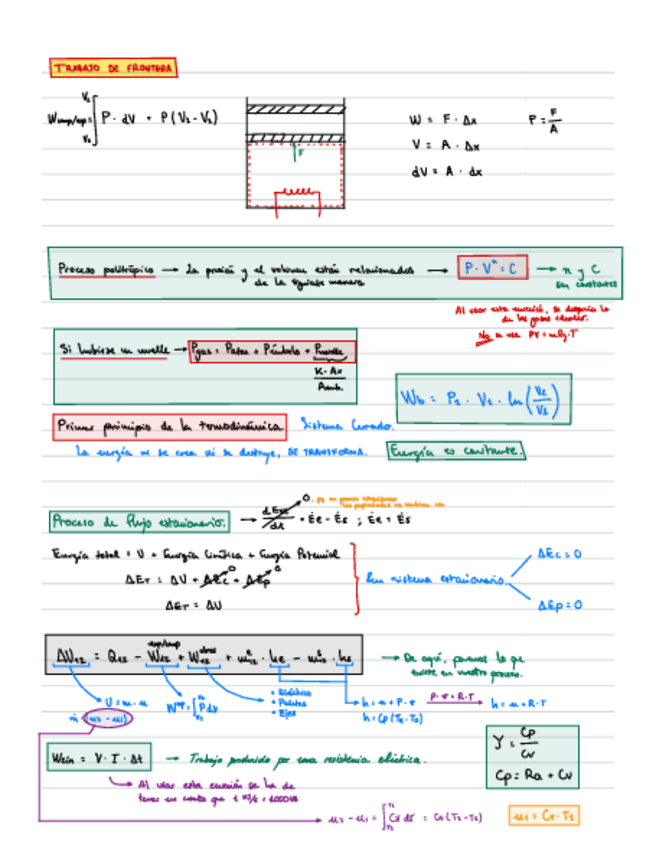 TRABAJO DE FRONTERA
W exp/comp = ∫ P · dV = P (V₂ - V₁)
W = F · Δx
P = F/A
V = A · Δx
dV = A · dx
F
Proceso politrópico → La presión y el volumen están relacionados → P · Vⁿ = C → n y C
de la siguiente manera
son constantes
Al usar esta ecuación, se
de los gases ideales.
No se usa
Si hubiese un muelle → Pgas = Patm + Pémbolo + Pmuelle
K · Δx
Aemb.
Wb = P₁ · V₁ · ln (V₂/V₁)
Primer principio de la termodinámica. Sistema Cerrado.
La energía ni se crea ni se destruye, SE TRANSFORMA. Energía es constante.
Proceso de flujo estacionario. → dEsc/dt = Ėe - Ės ; Ėe = Ės
0
Energía total = U + Energía Cinética + Energía Potencial
ΔET = ΔU + ΔEc + ΔEp
0 0
ΔET = ΔU
En sistema estacionario
ΔEc = 0
ΔEp = 0
ΔU₁₂ = Q₁₂ - W₁₂ + W₁₂ + m₁₂ · he - m₁₂ · hs
→ De aquí, ponemos lo que
existe en nuestro proceso.
U = m · u
ṁ (u₂ - u₁)
W = ∫ P dV
• Eléctrico
• Paletas
• Ejes
h = u + P · v
P · v = R · T
h = u + R · T
h = Cp (T₂ - T₁)
Welec = V · I · Δt → Trabajo producido por una resistencia eléctrica.
Al usar esta ecuación se ha de
tener en cuenta que 1 KJ/s = 1000VA
γ = Cp/Cv
Cp = Ra + Cv
u₂ - u₁ = ∫ Cv dT = Cv (T₂ - T₁)
u₁ = Cv · T₁